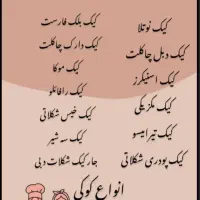 کیک نوتلا
کیک دبل چاکلت
کیک اسنیکرز
کیک مکزیکی
کیک تیرامیسو
کیک پودری شکلاتی
کیک بلک فارست
کیک دارک چاکلت
کیک موکا
کیک رافائلو
کیک خیس شکلاتی
کیک سه شیر
جار کیک شکلات دبی
انواع کوکی